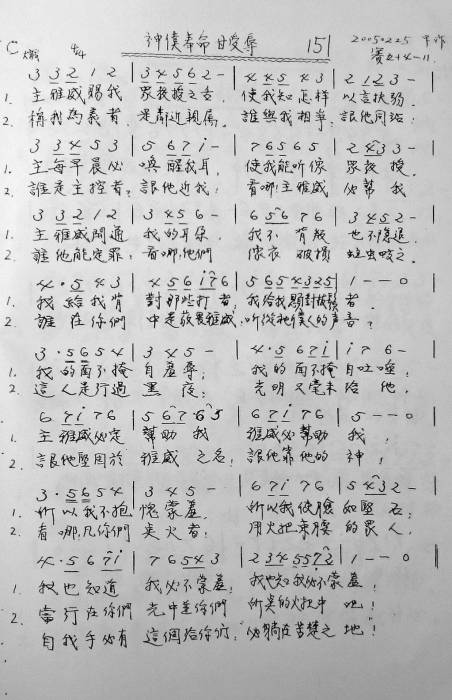 神僕奉命甘受辱 151 20050225
C 4/4 賽50:4-11
3 3 2 1 2 | 3 4 5 6 2 - | 4 4 5 4 3 | 2 1 2 3 - |
1. 主雅威賜我 眾教授之舌, 使我知怎样 以言扶弱.
2. 稱我為義者 是鄰近親属. 誰與我相爭; 讓他同站:
3 3 4 5 3 | 5 6 7 i - | 7 6 5 6 5 | 2 4 3 3 - |
1. 主每早晨必 喚醒我耳, 使我能听像 眾教授.
2. 誰是主控者? 讓他近我! 看哪!主雅威 必幫我
3 3 2 1 2 | 3 4 5 6 - | 6 5 6 7 6 | 3 4 5 2 - |
1. 主雅威開通 我的耳朵, 我不 背叛 也不後退.
2. 誰他能定罪; 看哪!他們 像衣 破损 蛀虫咬之.
4 · 5 4 3 | 4 5 6 i 7 6 | 5 6 5 4 3 2 5 | 1 - - 0 |
1. 我給我背 對那些打者; 我給我顋對拔鬚者.
2. 誰在你們 中是敬畏雅威; 听從祂僕人的声音?
3 · 5 6 5 4 | 3 4 5 - | 4 · 5 6 7 i | i 7 6 - |
1. 我的面不掩 自羞辱; 我的面不掩 自吐唾;
2. 這人走行過 黑夜; 光明又毫未 给他,
6 7 i 7 6 | 5 6 7 6 5 | 6 7 i 7 6 | 5 - - 0 |
1. 主雅威必定 幫助 我 雅威必幫助 我,
2. 讓他堅固於 雅威 之名; 讓他靠他的 神;
3 · 5 6 5 4 | 3 4 5 - | 6 7 i 7 6 | 5 4 3 2 - |
1. 所以我不抱 愧蒙羞. 所以我使臉 如堅石;
2. 看哪,凡你們 點火者; 用火把束腰 的眾人,
4 · 5 6 7 i | 7 6 5 4 3 | 2 3 4 5 5 7 2 | 1 - - 0 |
1. 我也知道 我必不蒙羞; 我也知我必不蒙羞;
2. 當行在你們 光中並你們 所點的火把中 吧!
自我手必有 這個给你們; 必躺在苦楚之地!